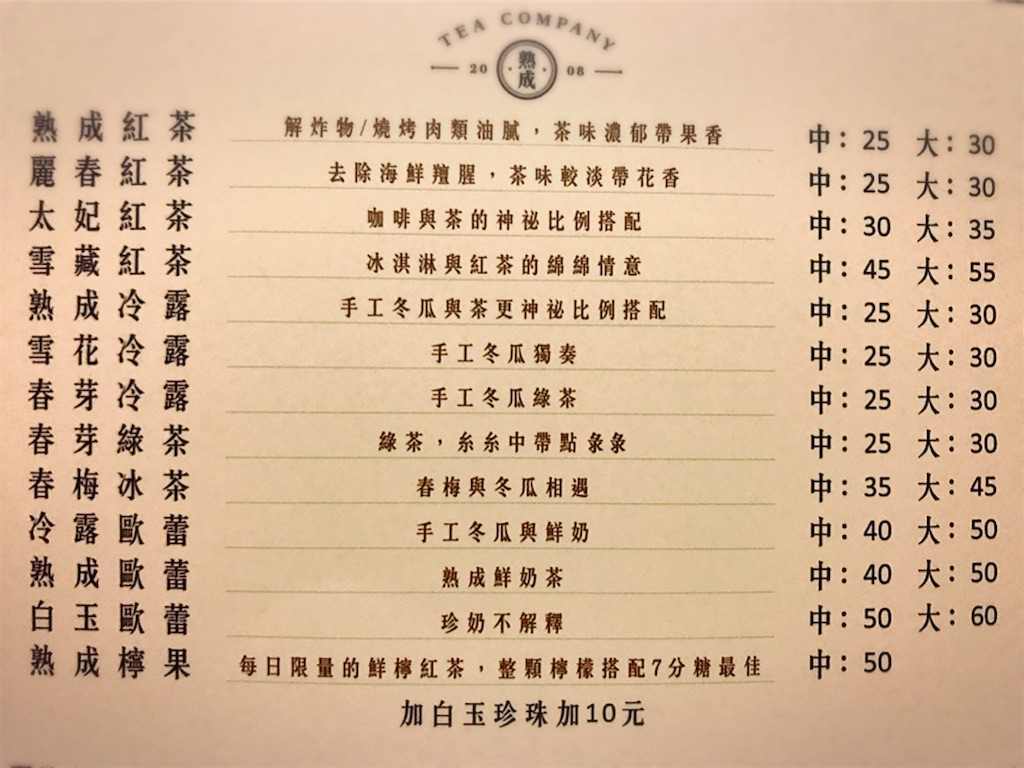 TEA COMPANY
20 熟成 08
熟成紅茶 解炸物/燒烤肉類油膩，茶味濃郁帶果香 中：25 大：30
麗春紅茶 去除海鮮羶腥，茶味較淡帶花香 中：25 大：30
太妃紅茶 咖啡與茶的神祕比例搭配 中：30 大：35
雪藏紅茶 冰淇淋與紅茶的綿綿情意 中：45 大：55
熟成冷露 手工冬瓜與茶更神祕比例搭配 中：25 大：30
雪花冷露 手工冬瓜獨奏 中：25 大：30
春芽冷露 手工冬瓜綠茶 中：25 大：30
春芽綠茶 綠茶，糸糸中帶點彖彖 中：25 大：30
春梅冰茶 春梅與冬瓜相遇 中：35 大：45
冷露歐蕾 手工冬瓜與鮮奶 中：40 大：50
熟成歐蕾 熟成鮮奶茶 中：40 大：50
白玉歐蕾 珍奶不解釋 中：50 大：60
熟成檸果 每日限量的鮮檸紅茶，整顆檸檬搭配7分糖最佳 中：50
加白玉珍珠加10元